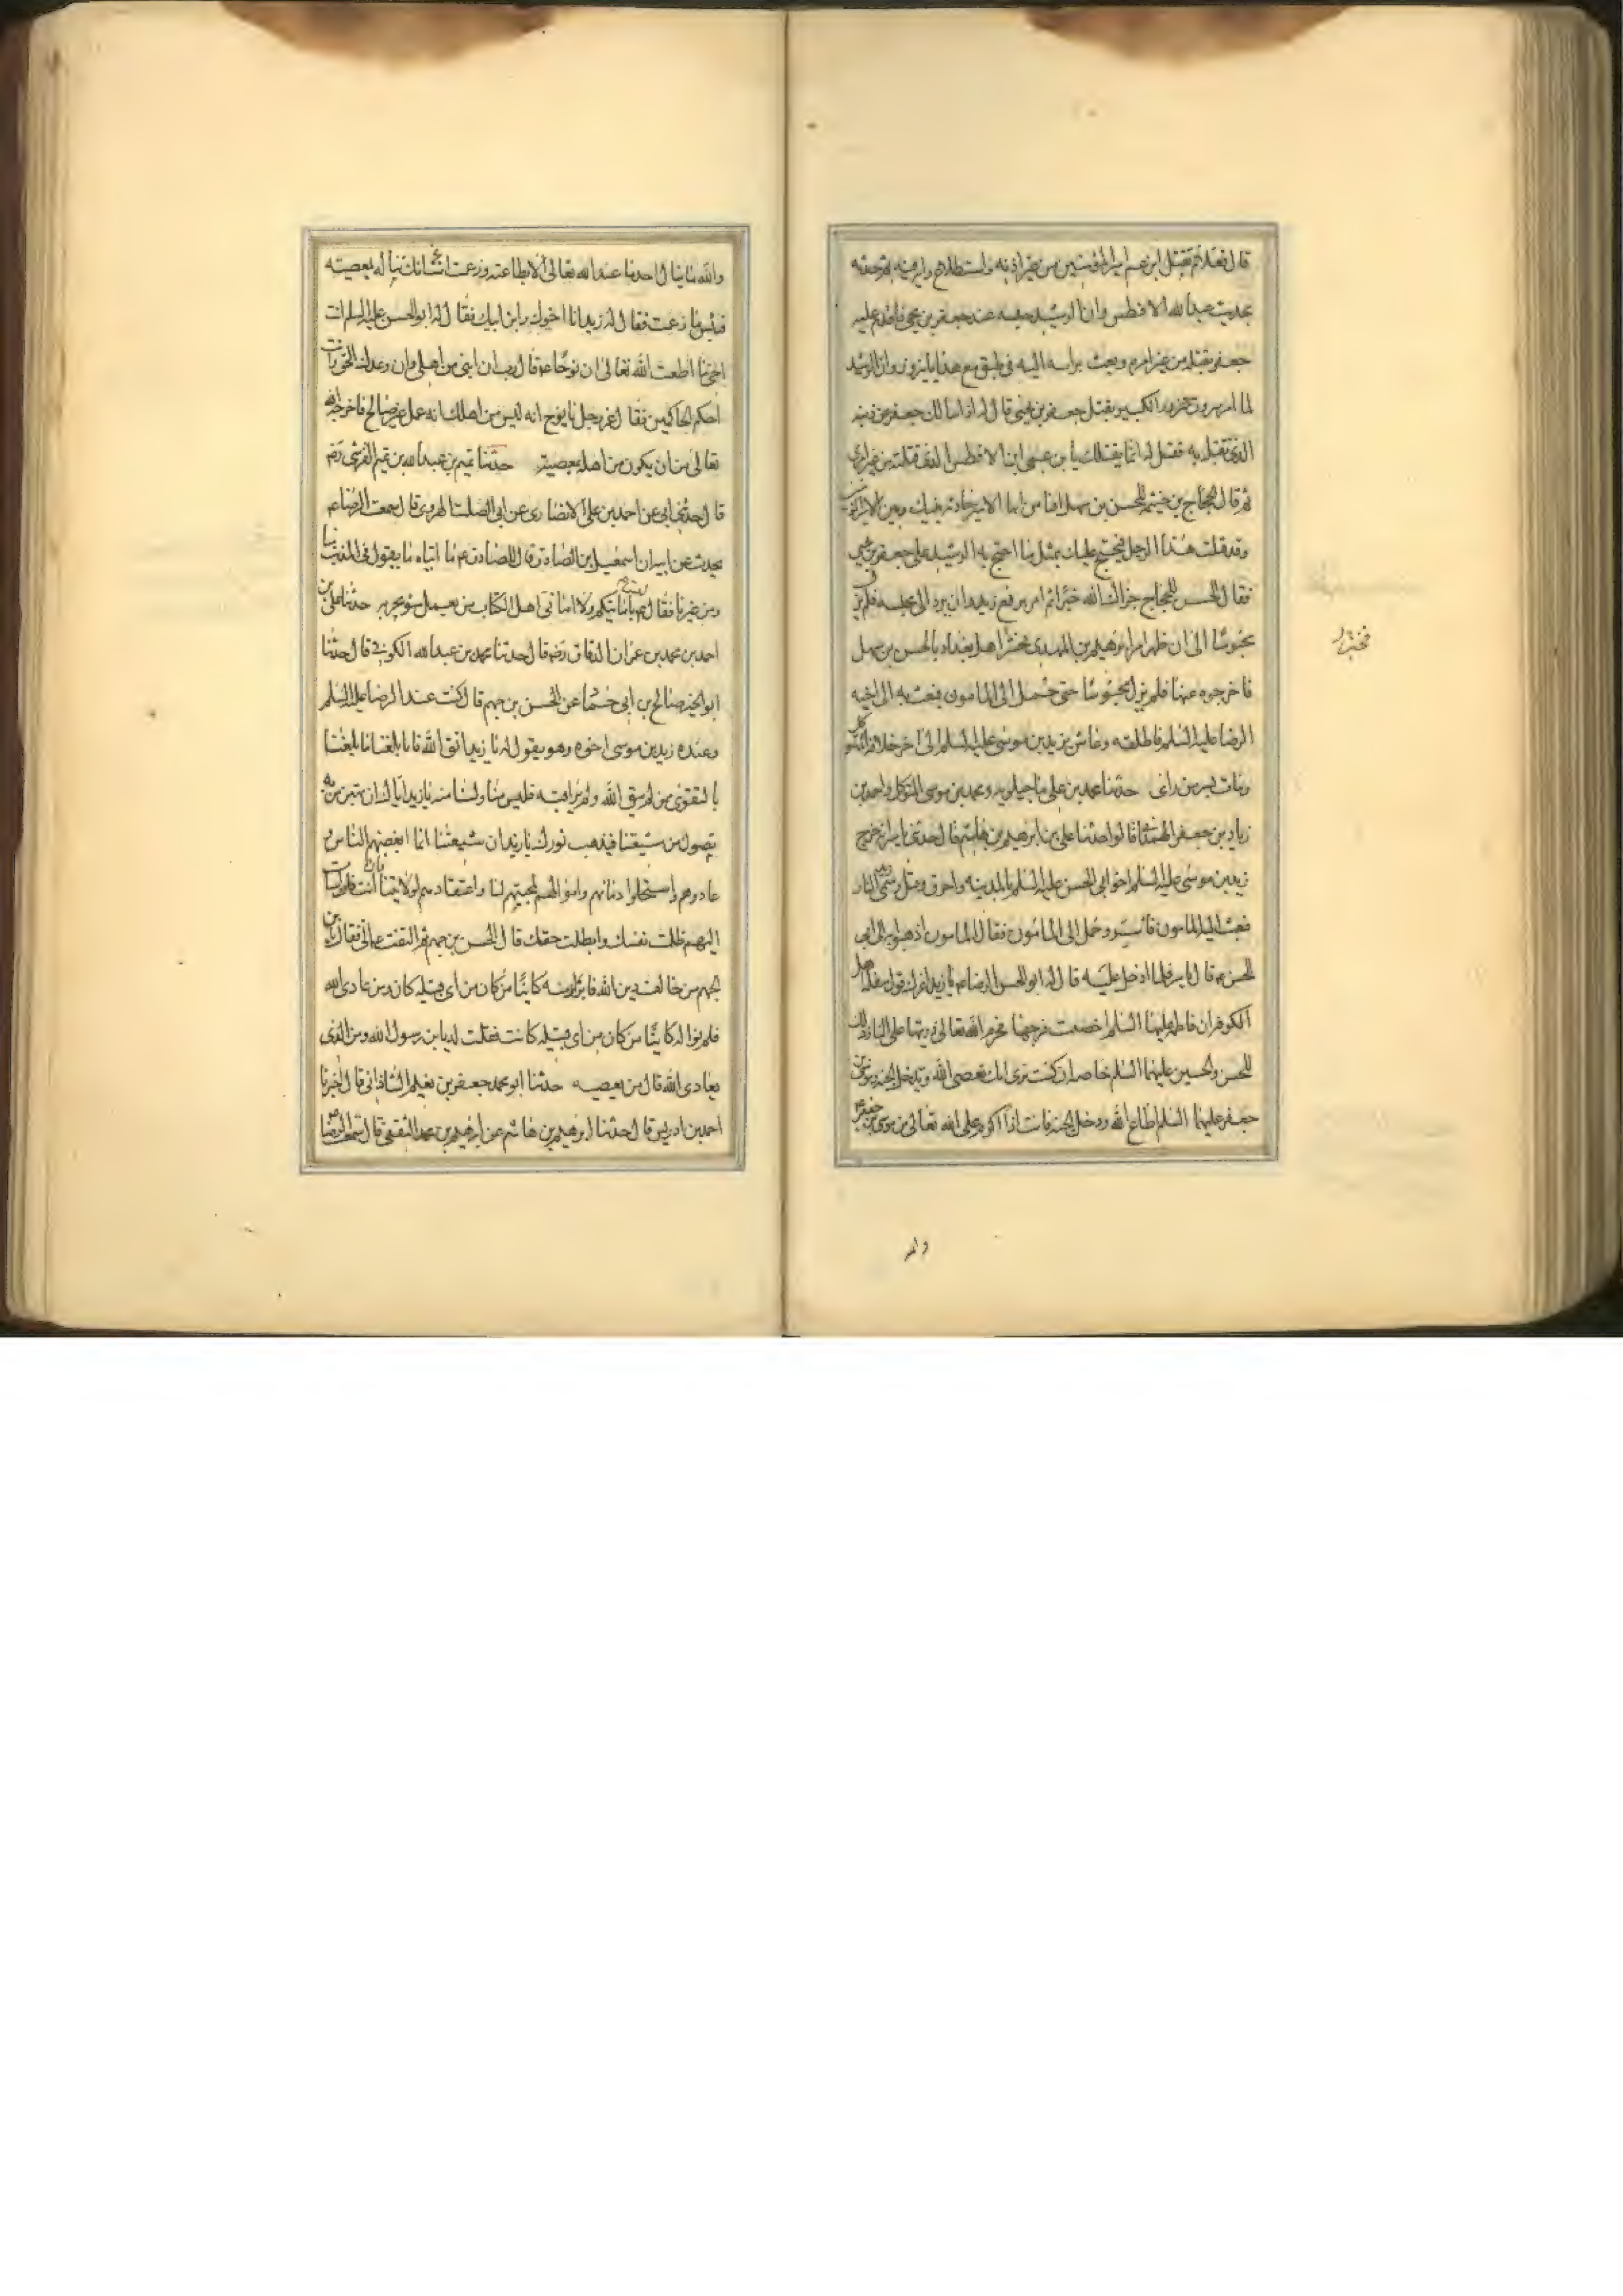 قال فعلام تقتل ابن عم امير المؤمنين من غير اذنه واستطلاع رايه فيه ثم حدثه
بحديث عبد الله الافطس وان الرشيد حبسه عند جعفر بن يحيى فاقدم عليه
جعفر فقتله من غير امره وبعث براسه اليه في طبق مع هدايا النيروز وان الرشيد
لما امر مسرور الكبير بقتل جعفر بن يحيى قال له اذا سالك جعفر عن ذنبه
الذي تقتله به فقل له انما يقتلك يا بن عمي ابن الافطس الذي قتلته من غير امري
ثم قال الحجاج بن خيثمه للحسن بن سهل افتامن ايها الامير حادثه بينك وبين
وقد قتلت هذا الرجل فيحتج عليك بمثل ما احتج به الرشيد على جعفر بن يحيى
فقال الحسن للحجاج جزاك الله خيرا ثم امر برفع زيد وان يرد الى محبسه فلم يزل
محبوسا الى ان ظهر امر ابرهيم بن المهدي فحشر اهل بغداد بالحسن بن سهل
فاخرجوه عنها فلم يزل محبوسا حتى حمل الى المامون فبعث به الى اخيه
الرضا عليه السلم فاطلقه وعاش زيد بن موسى عليه السلم الى اخر خلافه المتوكل
ومات بسر من راى حدثنا محمد بن علي ماجيلويه ومحمد بن موسى المتوكل واحمد بن
زياد بن جعفر الهمداني قالوا حدثنا علي بن ابرهيم بن هاشم قال حدثني ياسر انه خرج
زيد بن موسى عليه السلم اخو ابي الحسن عليه السلم بالمدينه واحرق وقتل وسمي زيد النار
فبعث اليه المامون فاسر وحمل الى المامون فقال المامون اذهبوا به الى ابي
الحسن ع قال ياسر فلما ادخل عليه قال له ابو الحسن الرضا ع يا زيد اغرك قول سفله اهل
الكوفه ان فاطمه عليها السلم احصنت فرجها فحرم الله تعالى ذريتها على النار ذلك
للحسن والحسين عليهما السلم خاصه ان كنت ترى انك تعصي الله وتدخل الجنه وموسى بن
جعفر عليهما السلم اطاع الله ودخل الجنه فانت اذا اكرم على الله تعالى من موسى بن جعفر
والله
والله ما ينال احد ما عند الله تعالى الا بطاعته وزعمت انك تناله بمعصيته
فبئس ما زعمت فقال له زيد انا اخوك وابن ابيك فقال له ابو الحسن عليه السلم انت
اخي ما اطعت الله تعالى ان نوحا ع قال رب ان ابني من اهلي وان وعدك الحق وانت
احكم الحاكمين فقال عز وجل يا نوح انه ليس من اهلك انه عمل غير صالح فاخرجه الله
تعالى من ان يكون من اهله بمعصيته حدثنا تميم بن عبد الله بن تميم القرشي رضه
قال حدثني ابي عن احمد بن علي الانصاري عن ابي الصلت الهروي قال سمعت الرضا ع
يحدث عن ابيه ان اسمعيل بن الصادق قال للصادق ع يا ابتاه ما يقول في المذنب منا
ومن غيرنا فقال ع ليس بامانيكم ولا اماني اهل الكتاب من يعمل سوء يجز به حدثنا علي بن
احمد بن محمد بن عمران الدقاق رضه قال حدثنا محمد بن عبد الله الكوفي قال حدثنا
ابو الخير صالح بن ابي حماد عن الحسن بن جهم قال كنت عند الرضا عليه السلم
وعنده زيد بن موسى اخوه وهو يقول له يا زيد اتق الله فانا بلغنا ما بلغنا
بالتقوى فمن لم يتق الله ولم يراقبه فليس منا ولسنا منه يا زيد اياك ان تهين من به
يصول من شيعتنا فيذهب نورك يا زيد ان شيعتنا انما ابغضهم الناس و
عادوهم واستحلوا دمائهم واموالهم لمحبتهم لنا واعتقادهم لولايتنا فان انت اسات
اليهم ظلمت نفسك وابطلت حقك قال الحسن بن جهم ثم التفت ع الي فقال يا بن
الجهم من خالف دين الله فابرا منه كائنا من كان من اي قبيله كان ومن عادى الله
فلا تواله كائنا من كان من اي قبيله كانت فقلت له يا بن رسول الله ومن الذي
يعادي الله قال من يعصيه حدثنا ابو محمد جعفر بن نعيم الشاذاني قال اخبرنا
احمد بن ادريس قال حدثنا ابرهيم بن هاشم عن ابرهيم بن محمد الثقفي قال سمعت الرضا